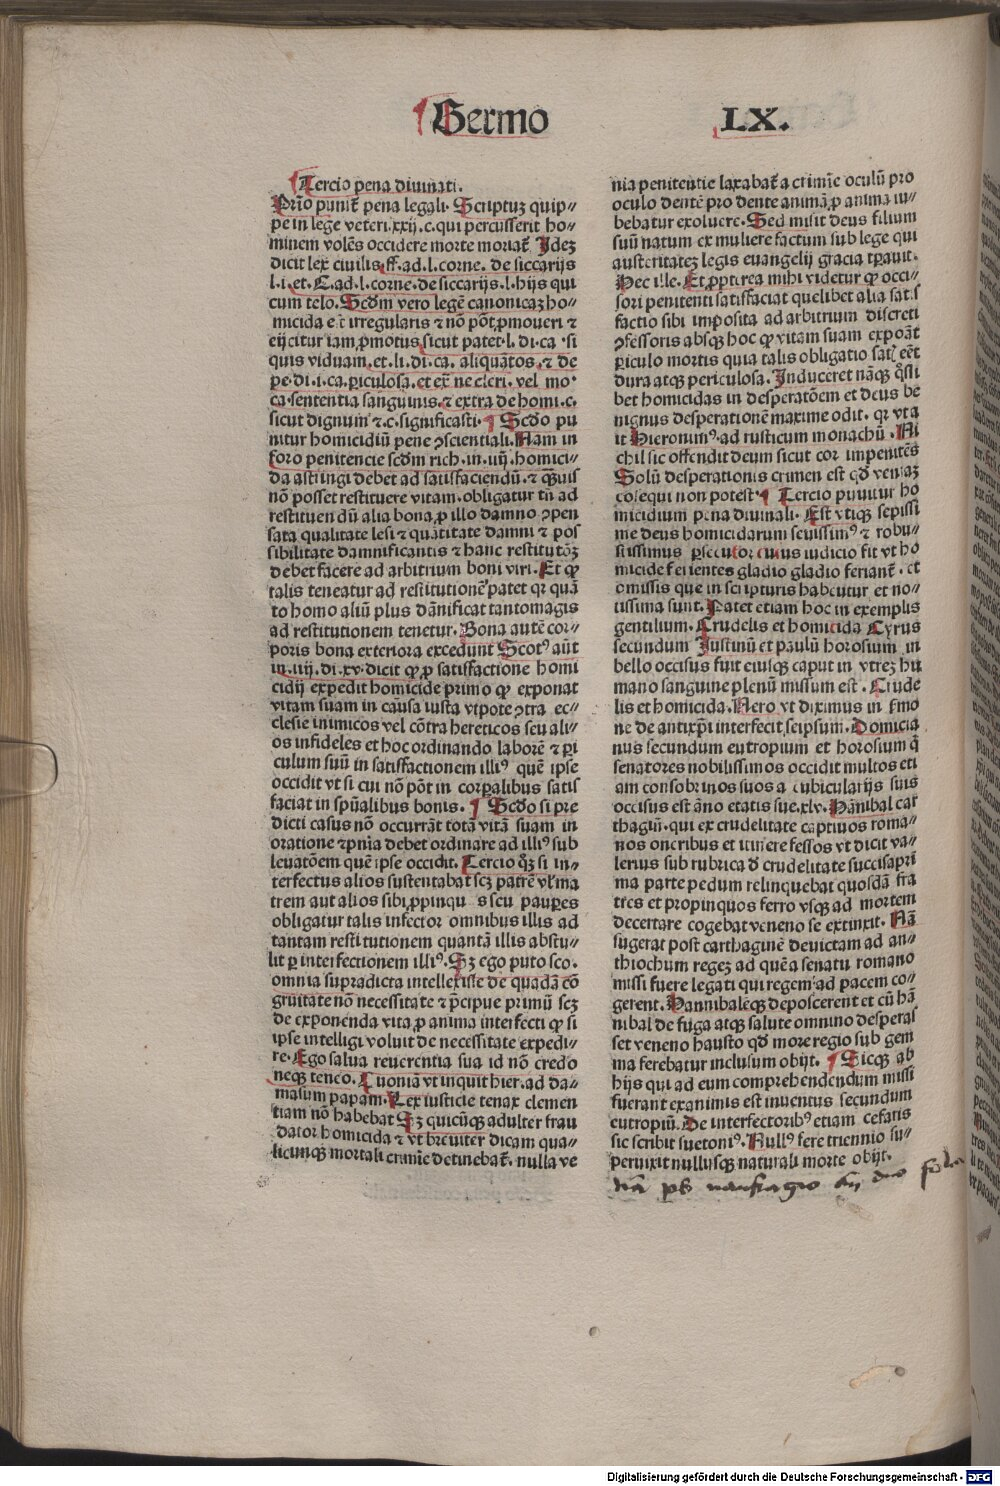 Sermo LX.
Tercio pena diuinati.
Prīo punit̄ pena legali. Scriptuꝫ quip⸗
pe in lege veteri.xxij.c.qui percusserit ho⸗
minem volēs occidere morte moriat̄. Ideꝫ
dicit lex ciuilis ff.ad.l.corne. de siccarijs
l.i.et.C.ad.l.corne.de siccarijs.l.hijs qui
cum telo. Scḋm vero legē canonicaꝫ ho⸗
micida est irregularis ⁊ nō pōt ꝓmoueri ⁊
eijcitur iam ꝓmotus sicut patet.l.di.ca.si
quis viduam.et.li.di.ca.aliquātos.⁊ de
pe.di.i.ca.ꝑiculosa.et ex̄ ne cleri.vel mo.
ca.sententia sanguinis.⁊ extra de homi.c.
sicut dignum ⁊.c.significasti. Scḋo pu
nitur homicidiū pene ꝯscientiali. Nam in
foro penitencie scḋm rich.in.iiij.homici⸗
da astringi debet ad satisfaciendū.⁊ ꝙ̄uis
nō posset restituere vitam.obligatur tn̄ ad
restituendū alia bona ꝓ illo damno ꝯpen
sata qualitate lesi ⁊ quātitate damni ⁊ pos
sibilitate damnificantis ⁊ hanc restitutōꝫ
debet facere ad arbitrium boni viri. Et ꝙ
talis teneatur ad restitutionē patet qꝛ quā
to homo aliū plus dānificat tanto magis
ad restitutionem tenetur. Bona autē cor⸗
poris bona exteriora excedunt Scotꝰ aūt
in.iiij.di.xv.dicit ꝙ ꝓ satisfactione homi
cidij expedit homicide primo ꝙ exponat
vitam suam in causa iusta vtpote ꝯtra ec⸗
clesie inimicos vel cōtra hereticos seu ali⸗
os infideles et hoc ordinando laborē ⁊ ꝑi
culum suū in satisfactionem illiꝰ quē ipse
occidit vt si cui nō pōt in corꝑalibus satis
faciat in sp̄ualibus bonis. Scḋo si pre
dicti casus nō occurrāt totā vitā suam in
oratione ⁊ pn̄ia debet ordinare ad illiꝰ sub
leuatōem quē ipse occidit. Tercio qꝫ si in⸗
terfectus alios sustentabat scꝫ patrē vl̓ ma
trem aut alios sibi ꝓpinqu s seu pauꝑes
obligatur talis infector omnibus illis ad
tantam restitutionem quantā illis abstu⸗
lit ꝑ interfectionem illiꝰ. Sꝫ ego puto sco.
omnia supradicta intellexisse de quadā cō
gruitate nō necessitate ⁊ p̄cipue primū scꝫ
de exponenda vita ꝓ anima interfecti ꝙ si
ipse intelligi voluit de necessitate expedi⸗
re. Ego salua reuerentia sua id nō credo
neqꝫ teneo. Quoniā vt inquit hier.ad da⸗
masum papam. Lex iusticie tenax clemen
tiam nō habebat Sꝫ quicūqꝫ adulter frau
dator homicida ⁊ vt breuiter dicam qua⸗
licunqꝫ mortali crimīe detinebat̄. nulla ve
nia penitentie laxabat̄ a crimīe oculū pro
oculo dentē pro dente animā ꝓ anima iu⸗
bebatur exoluere. Sed misit deus filium
suū natum ex muliere factum sub lege qui
austeritateꝫ legis euangelij gracia tꝑauit.
Hec ille. Et ꝓpterea mihi videtur ꝙ occi⸗
sori penitenti satisfaciat quelibet alia satis
factio sibi imposita ad arbitrium discreti
ꝯfessoris absqꝫ hoc ꝙ vitam suam expoāt
ꝑiculo mortis quia talis obligatio satꝭ eēt
dura atqꝫ periculosa. Induceret nāqꝫ q̄sli
bet homicidas in desperatōem et deus be
nignus desperationē maxime odit. qꝛ vt a
it Hieronimꝰ.ad rusticum monachū. Ni
chil sic offendit deum sicut cor impenitēs
Solū desperationis crimen est qḋ veniaꝫ
cōsequi non potest. Tercio punitur ho
micidium pena diuinali. Est vtiqꝫ sepissi
me deus homicidarum seuissimꝰ ⁊ robu⸗
stissimus ꝑsecutor cuius iudicio fit vt ho
micide ferientes gladio gladio feriant̄. et
omissis que in scripturis habentur et no⸗
tissima sunt. Patet etiam hoc in exemplis
gentilium. Crudelis et homicida Cyrus
secundum Iustinū et paulū horosium in
bello occisus fuit eiusqꝫ caput in vtreꝫ hu
mano sanguine plenū missum est. Crude
lis et homicida. Nero vt diximus in s̄mo
ne de antixp̄i interfecit seipsum. Domicia
nus secundum eutropium et horosium q̄
senatores nobilissimos occidit multos eti
am consobrinos suos a cubicularijs suis
occisus est āno etatis sue.xlv. Hānibal car
thagiū.qui ex crudelitate captiuos roma⸗
nos oneribus et itinere fessos vt dicit va⸗
lerius sub rubrica ḋ crudelitate succisa pri
ma parte pedum relinquebat quosdā fra
tres et propinquos ferro vsqꝫ ad mortem
decertare cogebat veneno se extinxit. Nā
sugerat post carthaginē deuictam ad an⸗
thiochum regeꝫ ad quē a senatu romano
missi fuere legati qui regem ad pacem co⸗
gerent. Hannibaleqꝫ deposcerent et cū hā
nibal de fuga atqꝫ salute omnino desperas
set veneno hausto qḋ more regio sub gem
ma ferebatur inclusum obijt. Sicqꝫ ab
hijs qui ad eum comprehendendum missi
fuerant exanimis est inuentus secundum
eutropiū. De interfectoribꝰ etiam cesaris
sic scribit suetoniꝰ. Nullꝰ fere triennio su⸗
peruixit nullusqꝫ naturali morte obijt.
naufragio
Digitalisierung gefördert durch die Deutsche Forschungsgemeinschaft - DFG